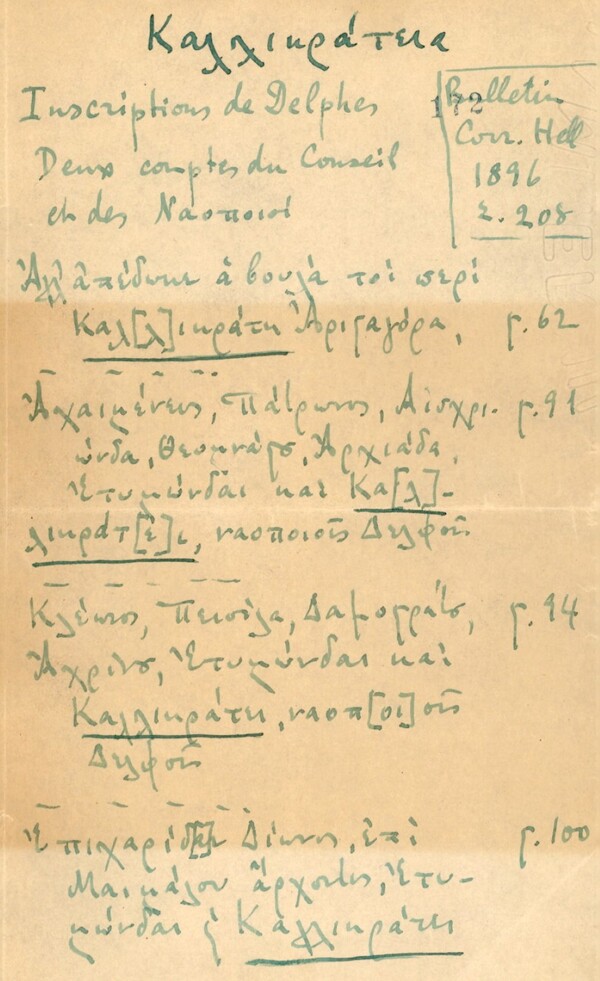 Καλλικράτεια
Inscriptions de Delphes
Deux comptes du Conseil
et des Ναοποιοί
172
Bulletin
Corr. Hell
1896
Σ. 208
Ἀλλ ἀπέδωκε ἁ βουλὰ τοῖ περὶ
Καλ[λ]ικράτη Ἀρισταγόρα, γ. 62
Ἀχαιμένευς, Πάτρωνος, Αἰσχρι- γ. 91
ώνδα, Θεομνάστ, Ἀρχιάδα,
Ἐτυμώνδαι καὶ Κα[λ]-
λικράτ[ε]ι, ναοποιοῖς Δελφοῖς
Κλέωνος, Πεισίλα, Δαμοκράτς, γ. 94
Ἐτυμώνδαι καὶ
Καλλικράτει, ναοπ[οι]οῖς
Δελφοῖς
Ἐπιχαρίδ[α] Δίωνος, ἐπὶ γ. 100
Μαιμάλου ἄρχοντος, Ἐτυ-
μώνδαι ϗ Καλλικράτει